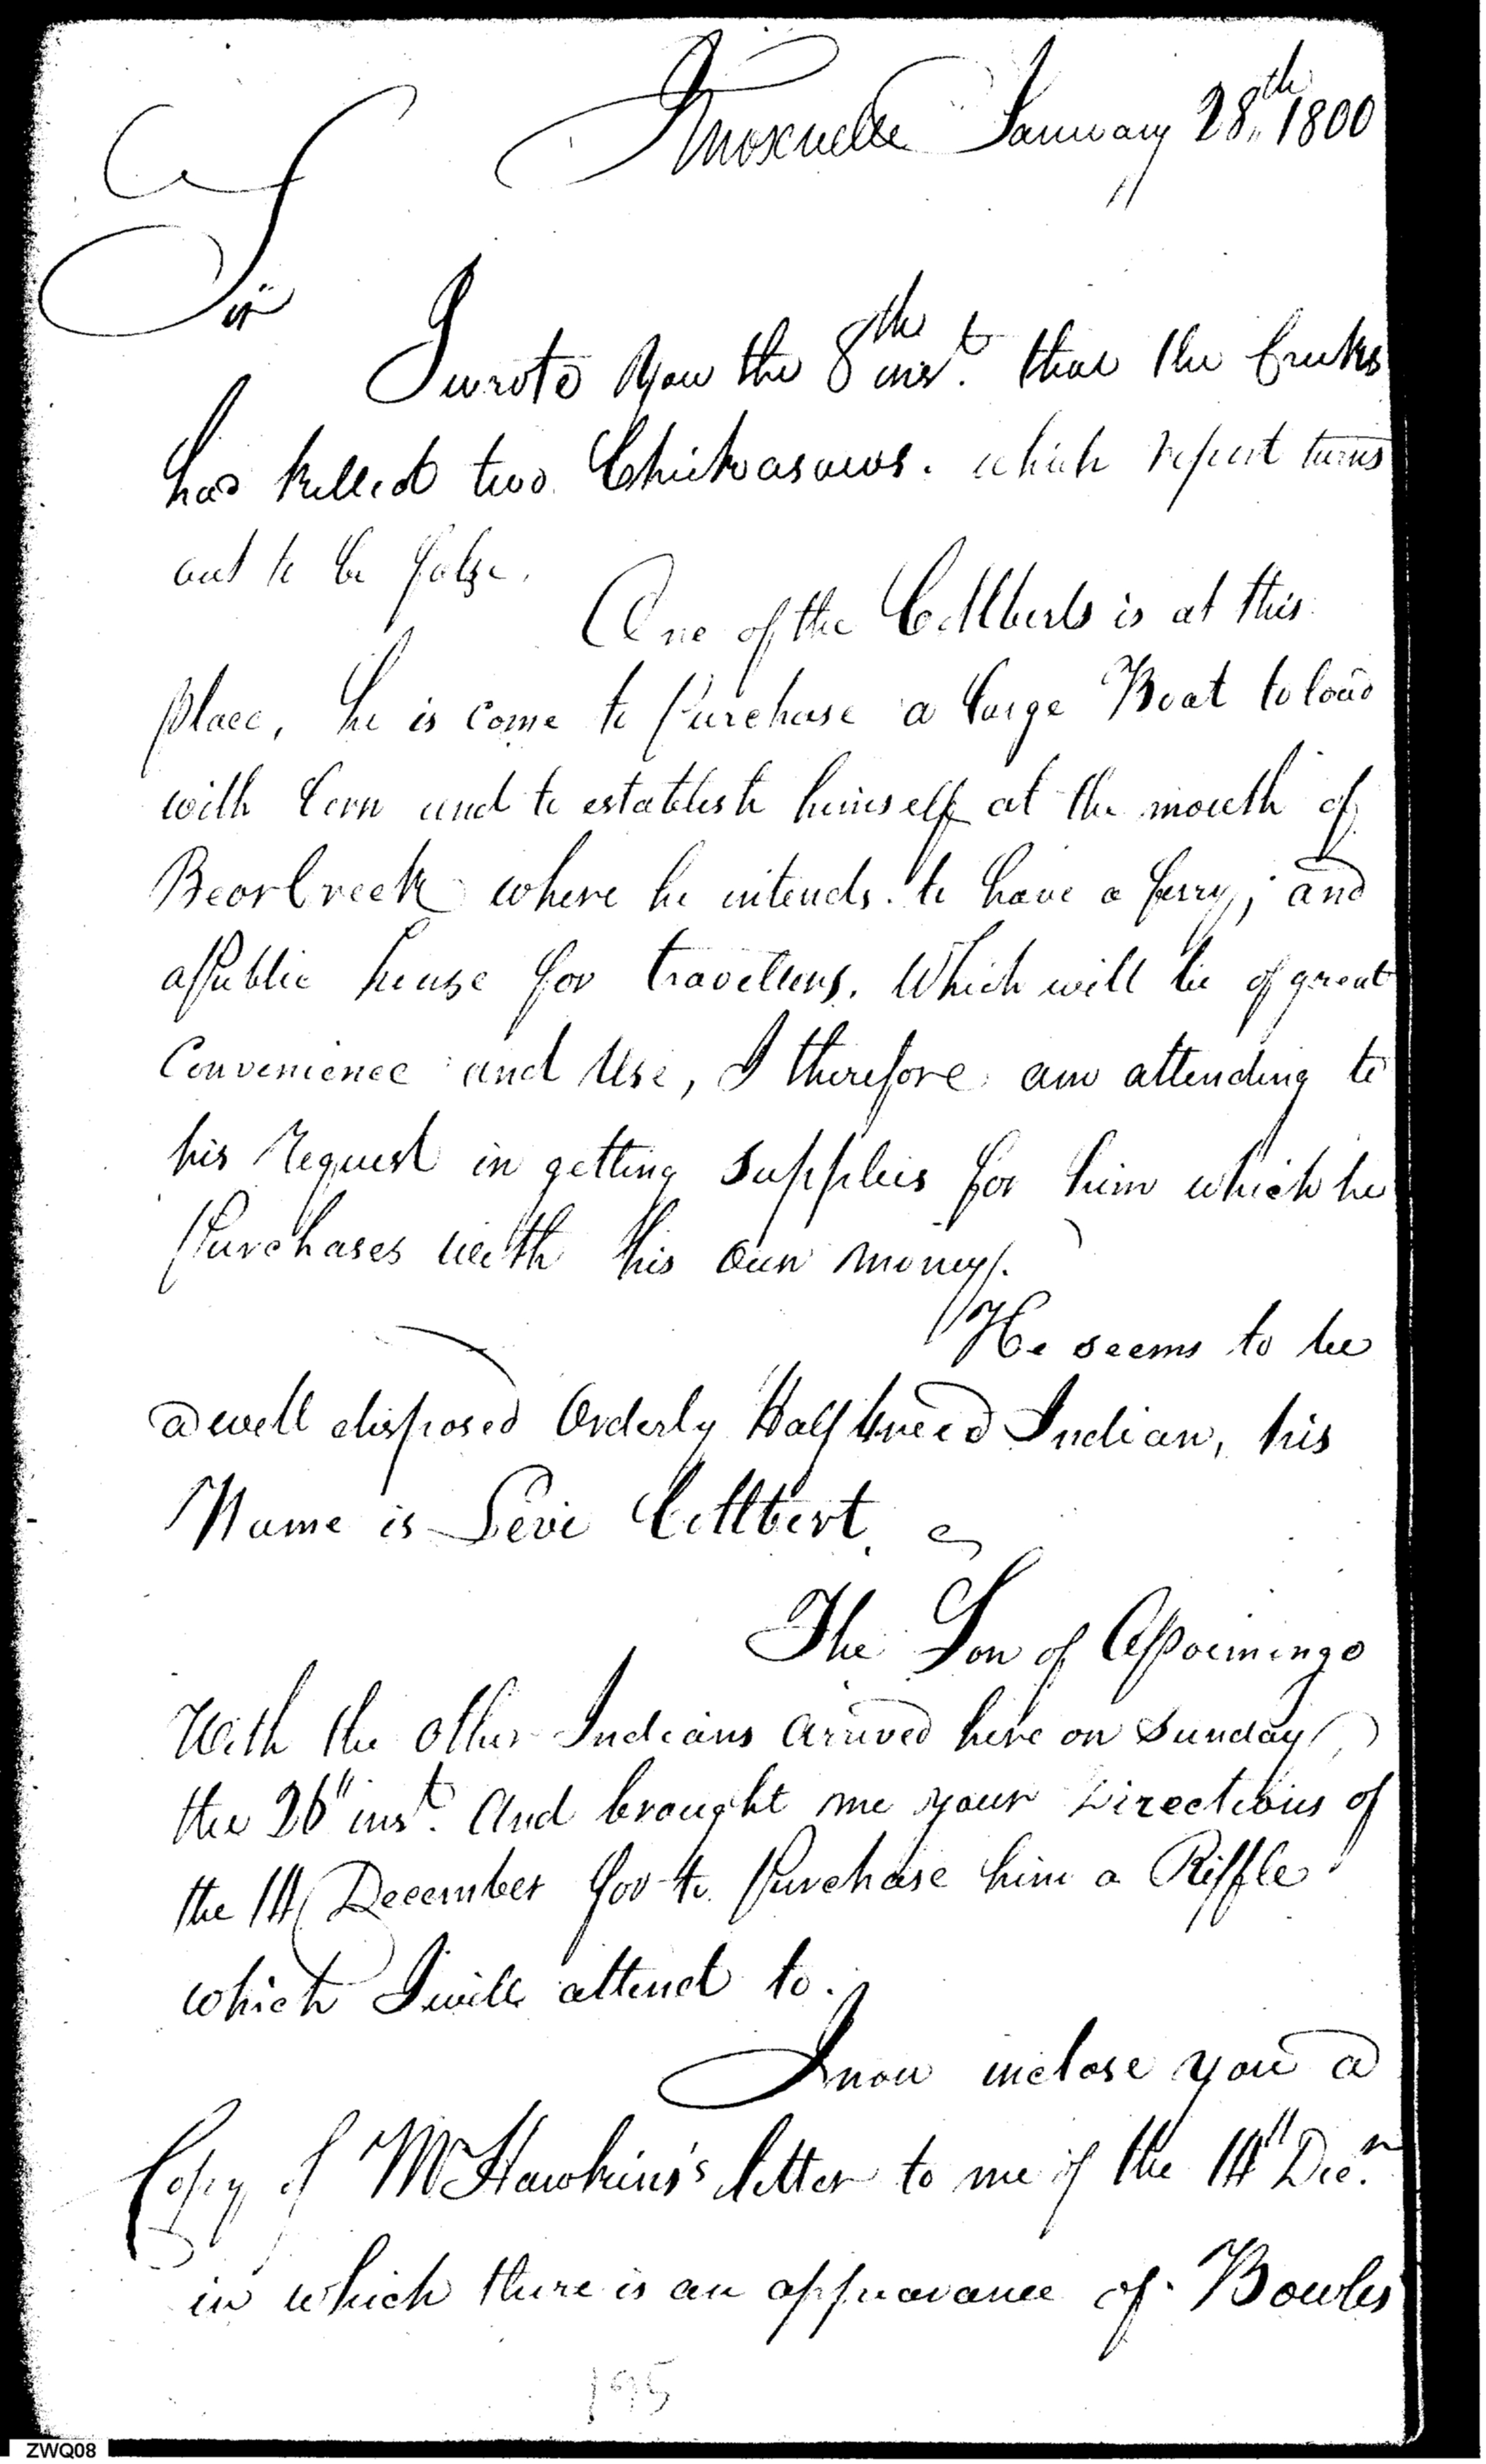 Knoxville January 28th 1800
Sir
I wrote You the 8th inst. that the Creeks
had killed two Chickasaws. which report turns
out to be false.
One of the Collberts is at this
place, he is come to Purchase a large Boat to load
with Corn and to establish himself at the mouth of
Bear Creek where he intends to have a ferry; and
a Public house for travellers. Which will be of great
Convenience and Use, I therefore am attending to
his request in getting supplies for him which he
Purchases with his own money.
He seems to be
a well disposed Orderly Half breed Indian, his
Name is Levi Collbert.
The Son of Opoimingo
With the other Indians arrived here on Sunday
the 26th inst. And brought me your Directions of
the 14 December for to Purchase him a Riffle
which I will attend to.
I now inclose you a
Copy of Mr Hawkins's letter to me of the 14th Decr.
in which there is an appearance of Bowles
195
ZWQ08